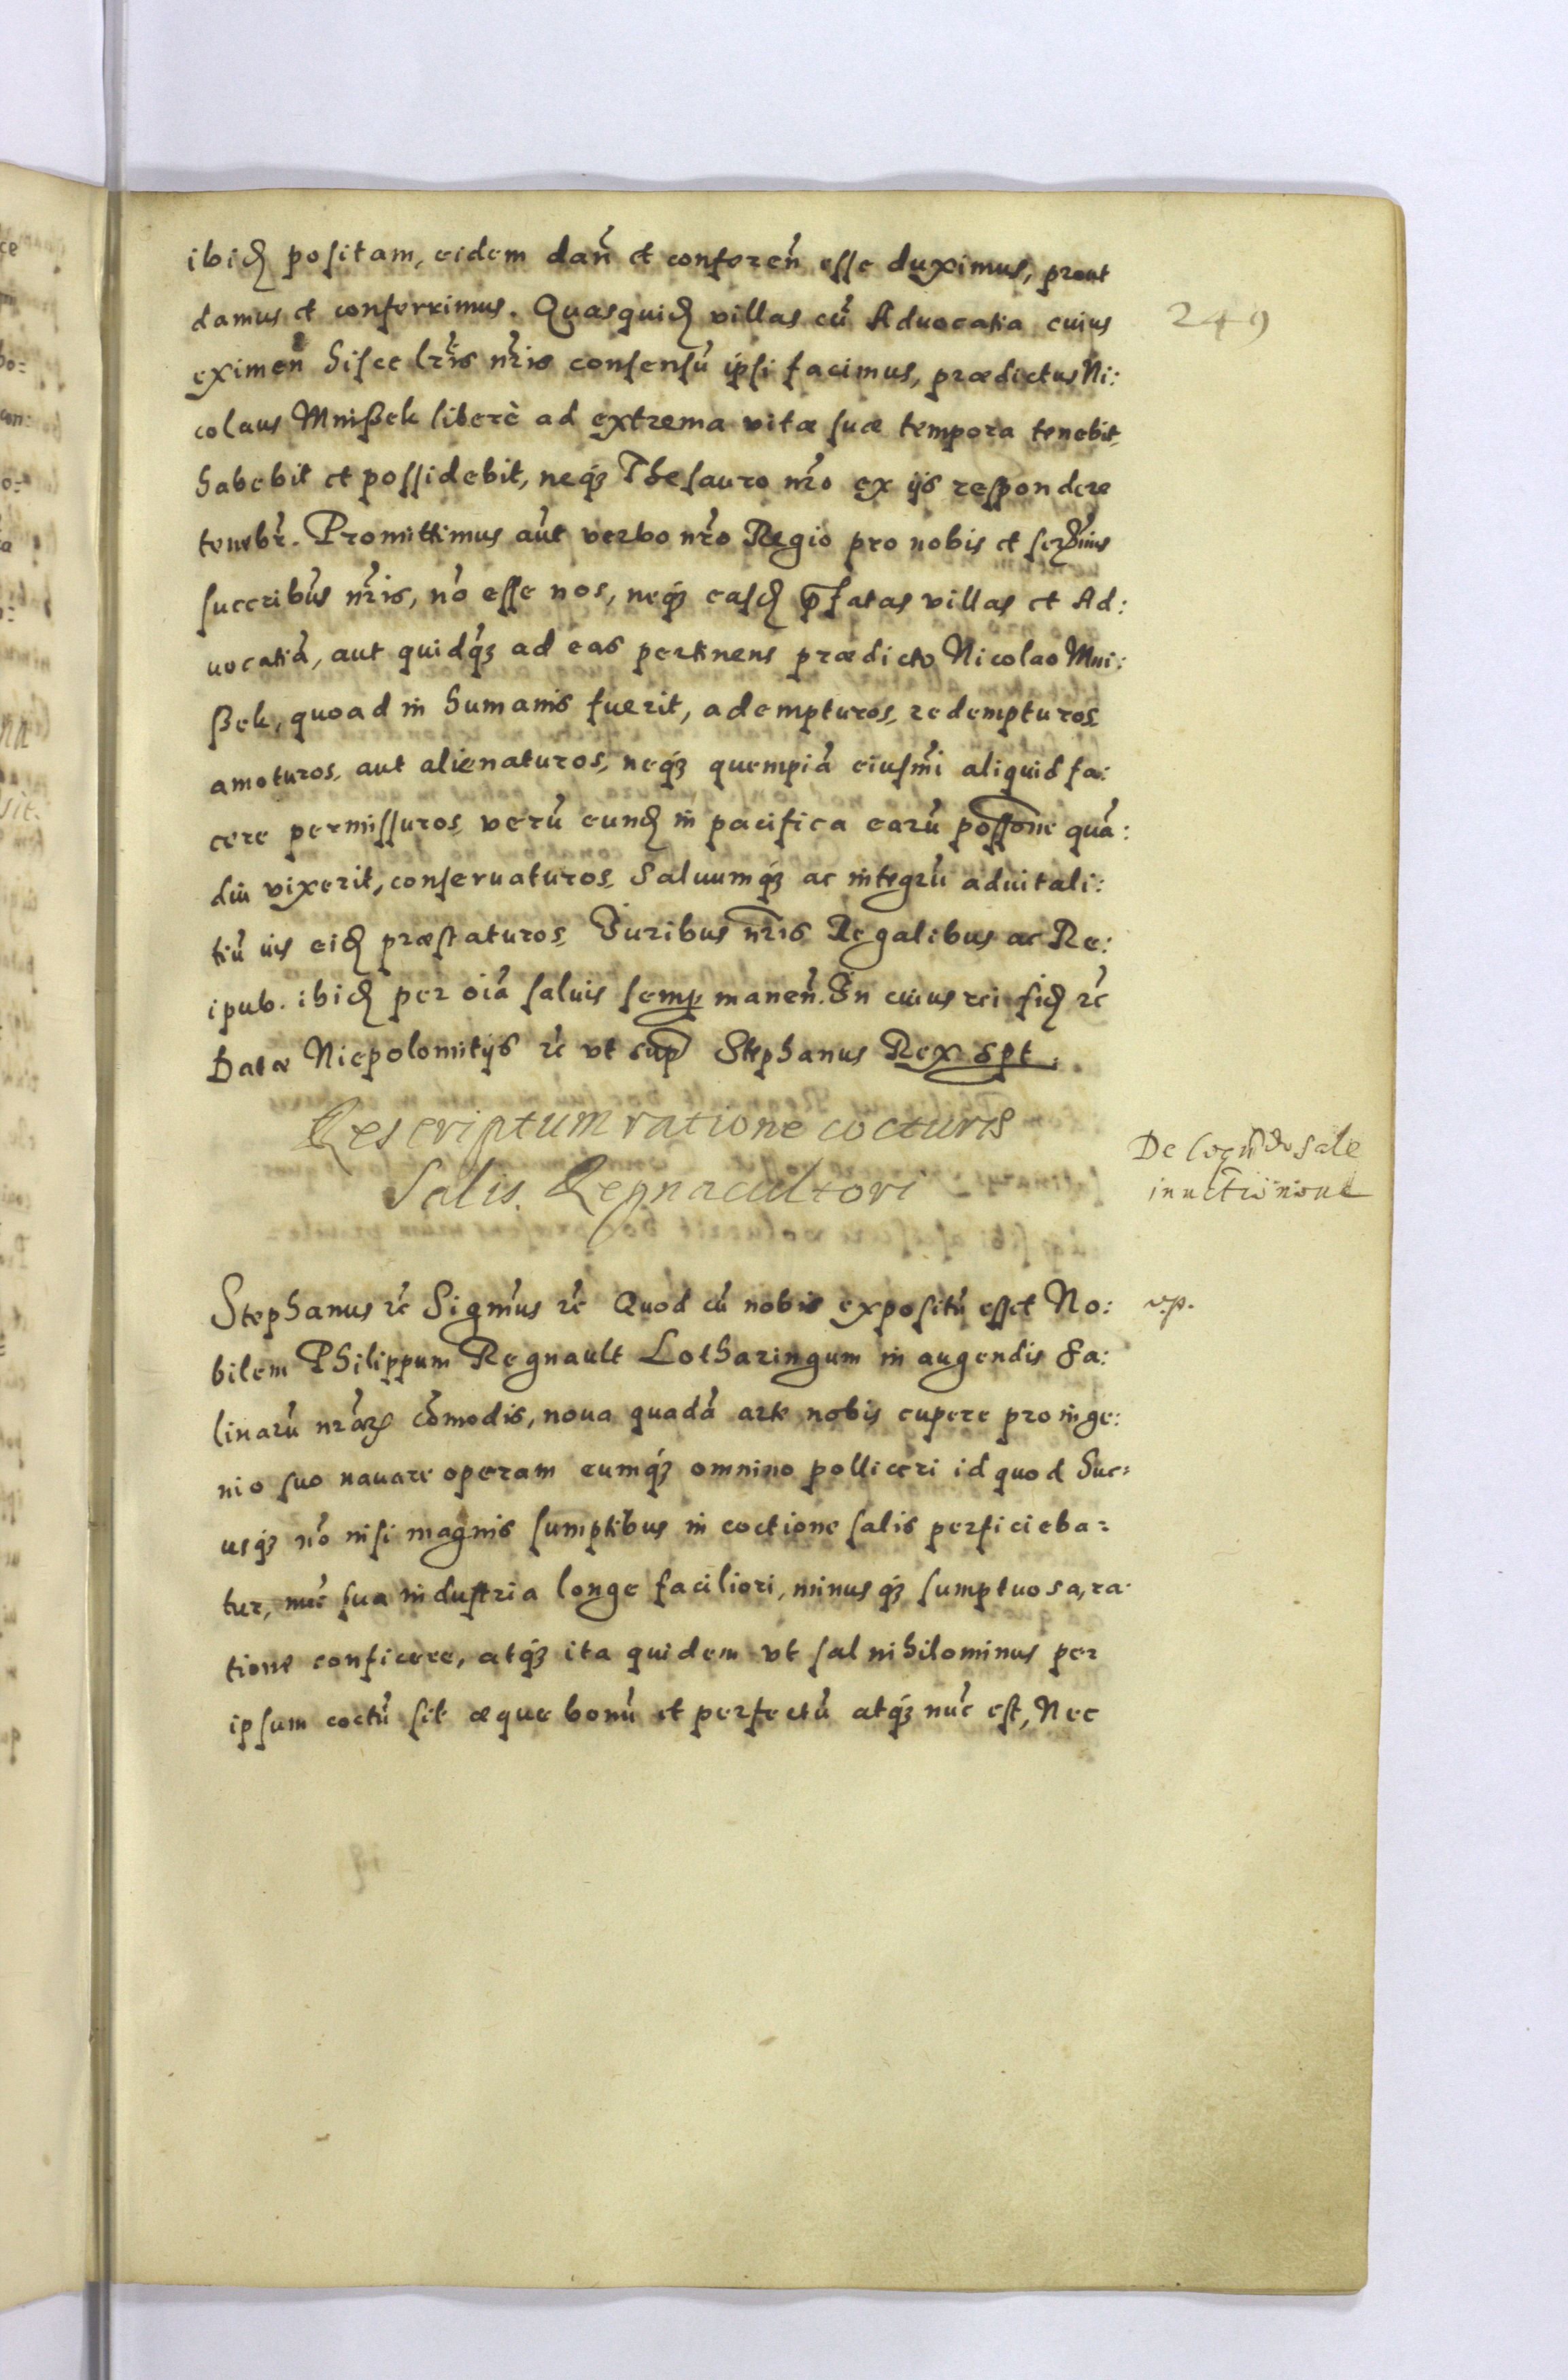 249
ibid positam, eidem dan̄ et conferen̄ esse duximus, prout
damus et conferrimus. Quasquid villas cū Aduocatia cuius
eximen̄ hisce lr̄is nr̄is consensū ipsi facimus, prædictus Ni:
colaus Mnißek liberè ad extrema vitæ suæ tempora tenebit,
habebit et possidebit, neq́ꝫ Thesauro nr̄o ex ijs respondere
tenebr̄. Promittimus aūt verbo nr̄o Regio pro nobis et serᵐⁱˢ
succribūs nr̄is, nō esse nos, neq́ꝫ easd p̄fatas villas et Ad:
uocatiā, aut quidq́ꝫ ad eas pertinens prædicto Nicolao Mni:
ßek, quoad in humanis fuerit, adempturos, redempturos
amoturos, aut alienaturos, neq́ꝫ quempiā eiusm̄i aliquid fa:
cere permissuros, verū eund in pacifica earū poss̄one quā:
diu vixerit, conseruaturos, Saluumq́ꝫ ac integrū aduitali:
tiū ius eid præstaturos, Juribus nr̄is Regalibus ac Re:
ipub. ibid per oīa saluis semp manen̄. In cuius rei fid rc̄
Datæ Niepolomitijs rc̄ vt sup Stephanus Rex spt.
Rescriptum ratione cocturis
Salis. Regnacultori
De coqn̄do sale
Stephanus rc̄ Sigm̄us rc̄ Quod cū nobis expositū esset No:
v.p.
bilem Philippum Regnault Lotharingum in augendis Sa:
linarū nr̄arꝝ cōmodis, noua quadā arte nobis cupere pro inge:
nio suo nauare operam eumq́ꝫ omnino polliceri id quod huc:
usq́ꝫ nō nisi magnis sumptibus in coctione salis perficieba:
tur, nūc sua industria longe faciliori, minusq́ꝫ sumptuosa, ra:
tione conficere, atq́ꝫ ita quidem vt sal nihilominus per
ipsum coctū sit æque bonū et perfectū atq́ꝫ nūc est, Nec